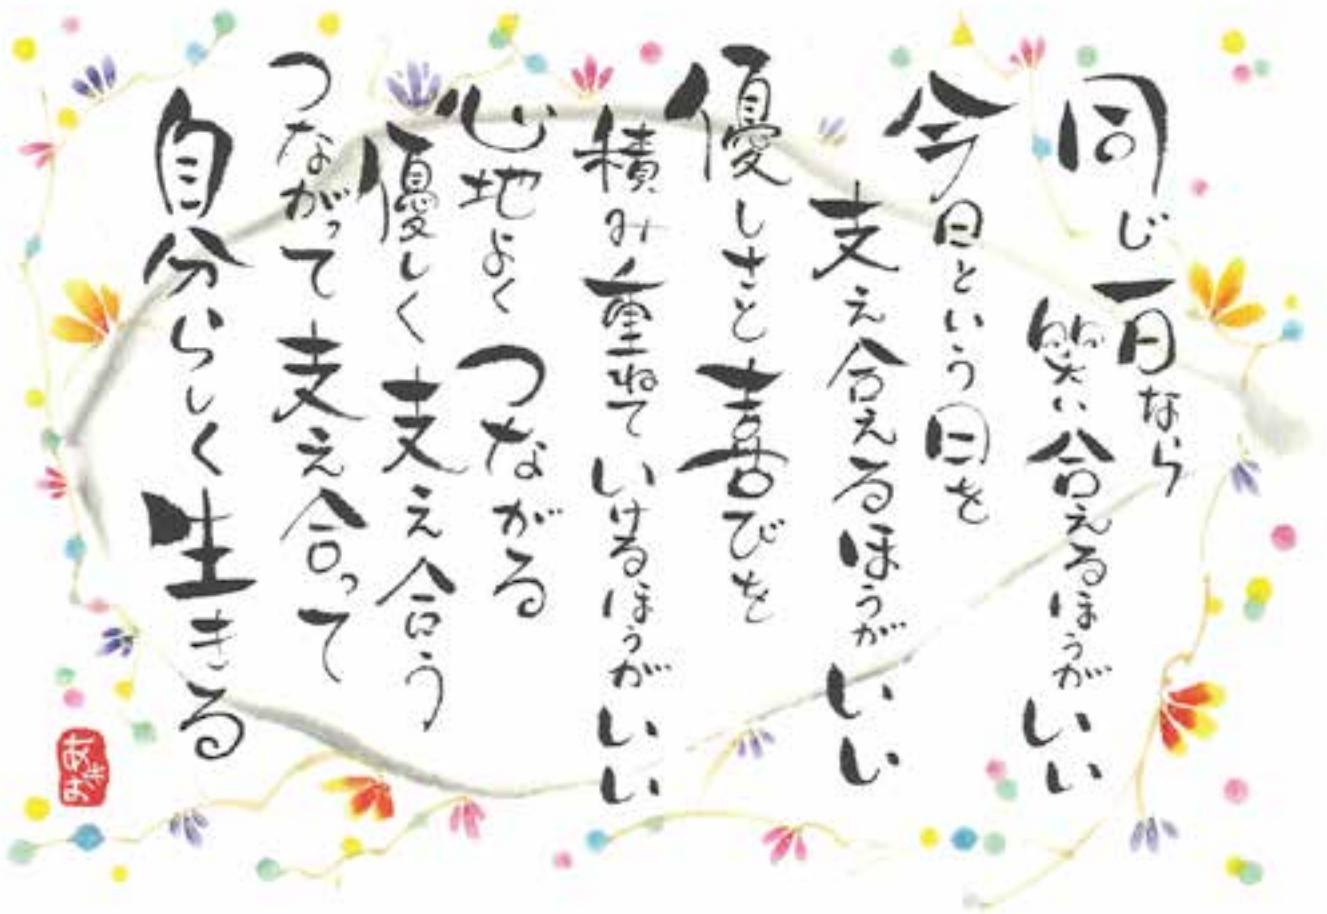 同じ一日なら
笑い合えるほうがいい
今日という日を
支え合えるほうがいい
優しさと喜びを
積み重ねていけるほうがいい
心地よくつながる
優しく支え合う
つながって支え合って
自分らしく生きる